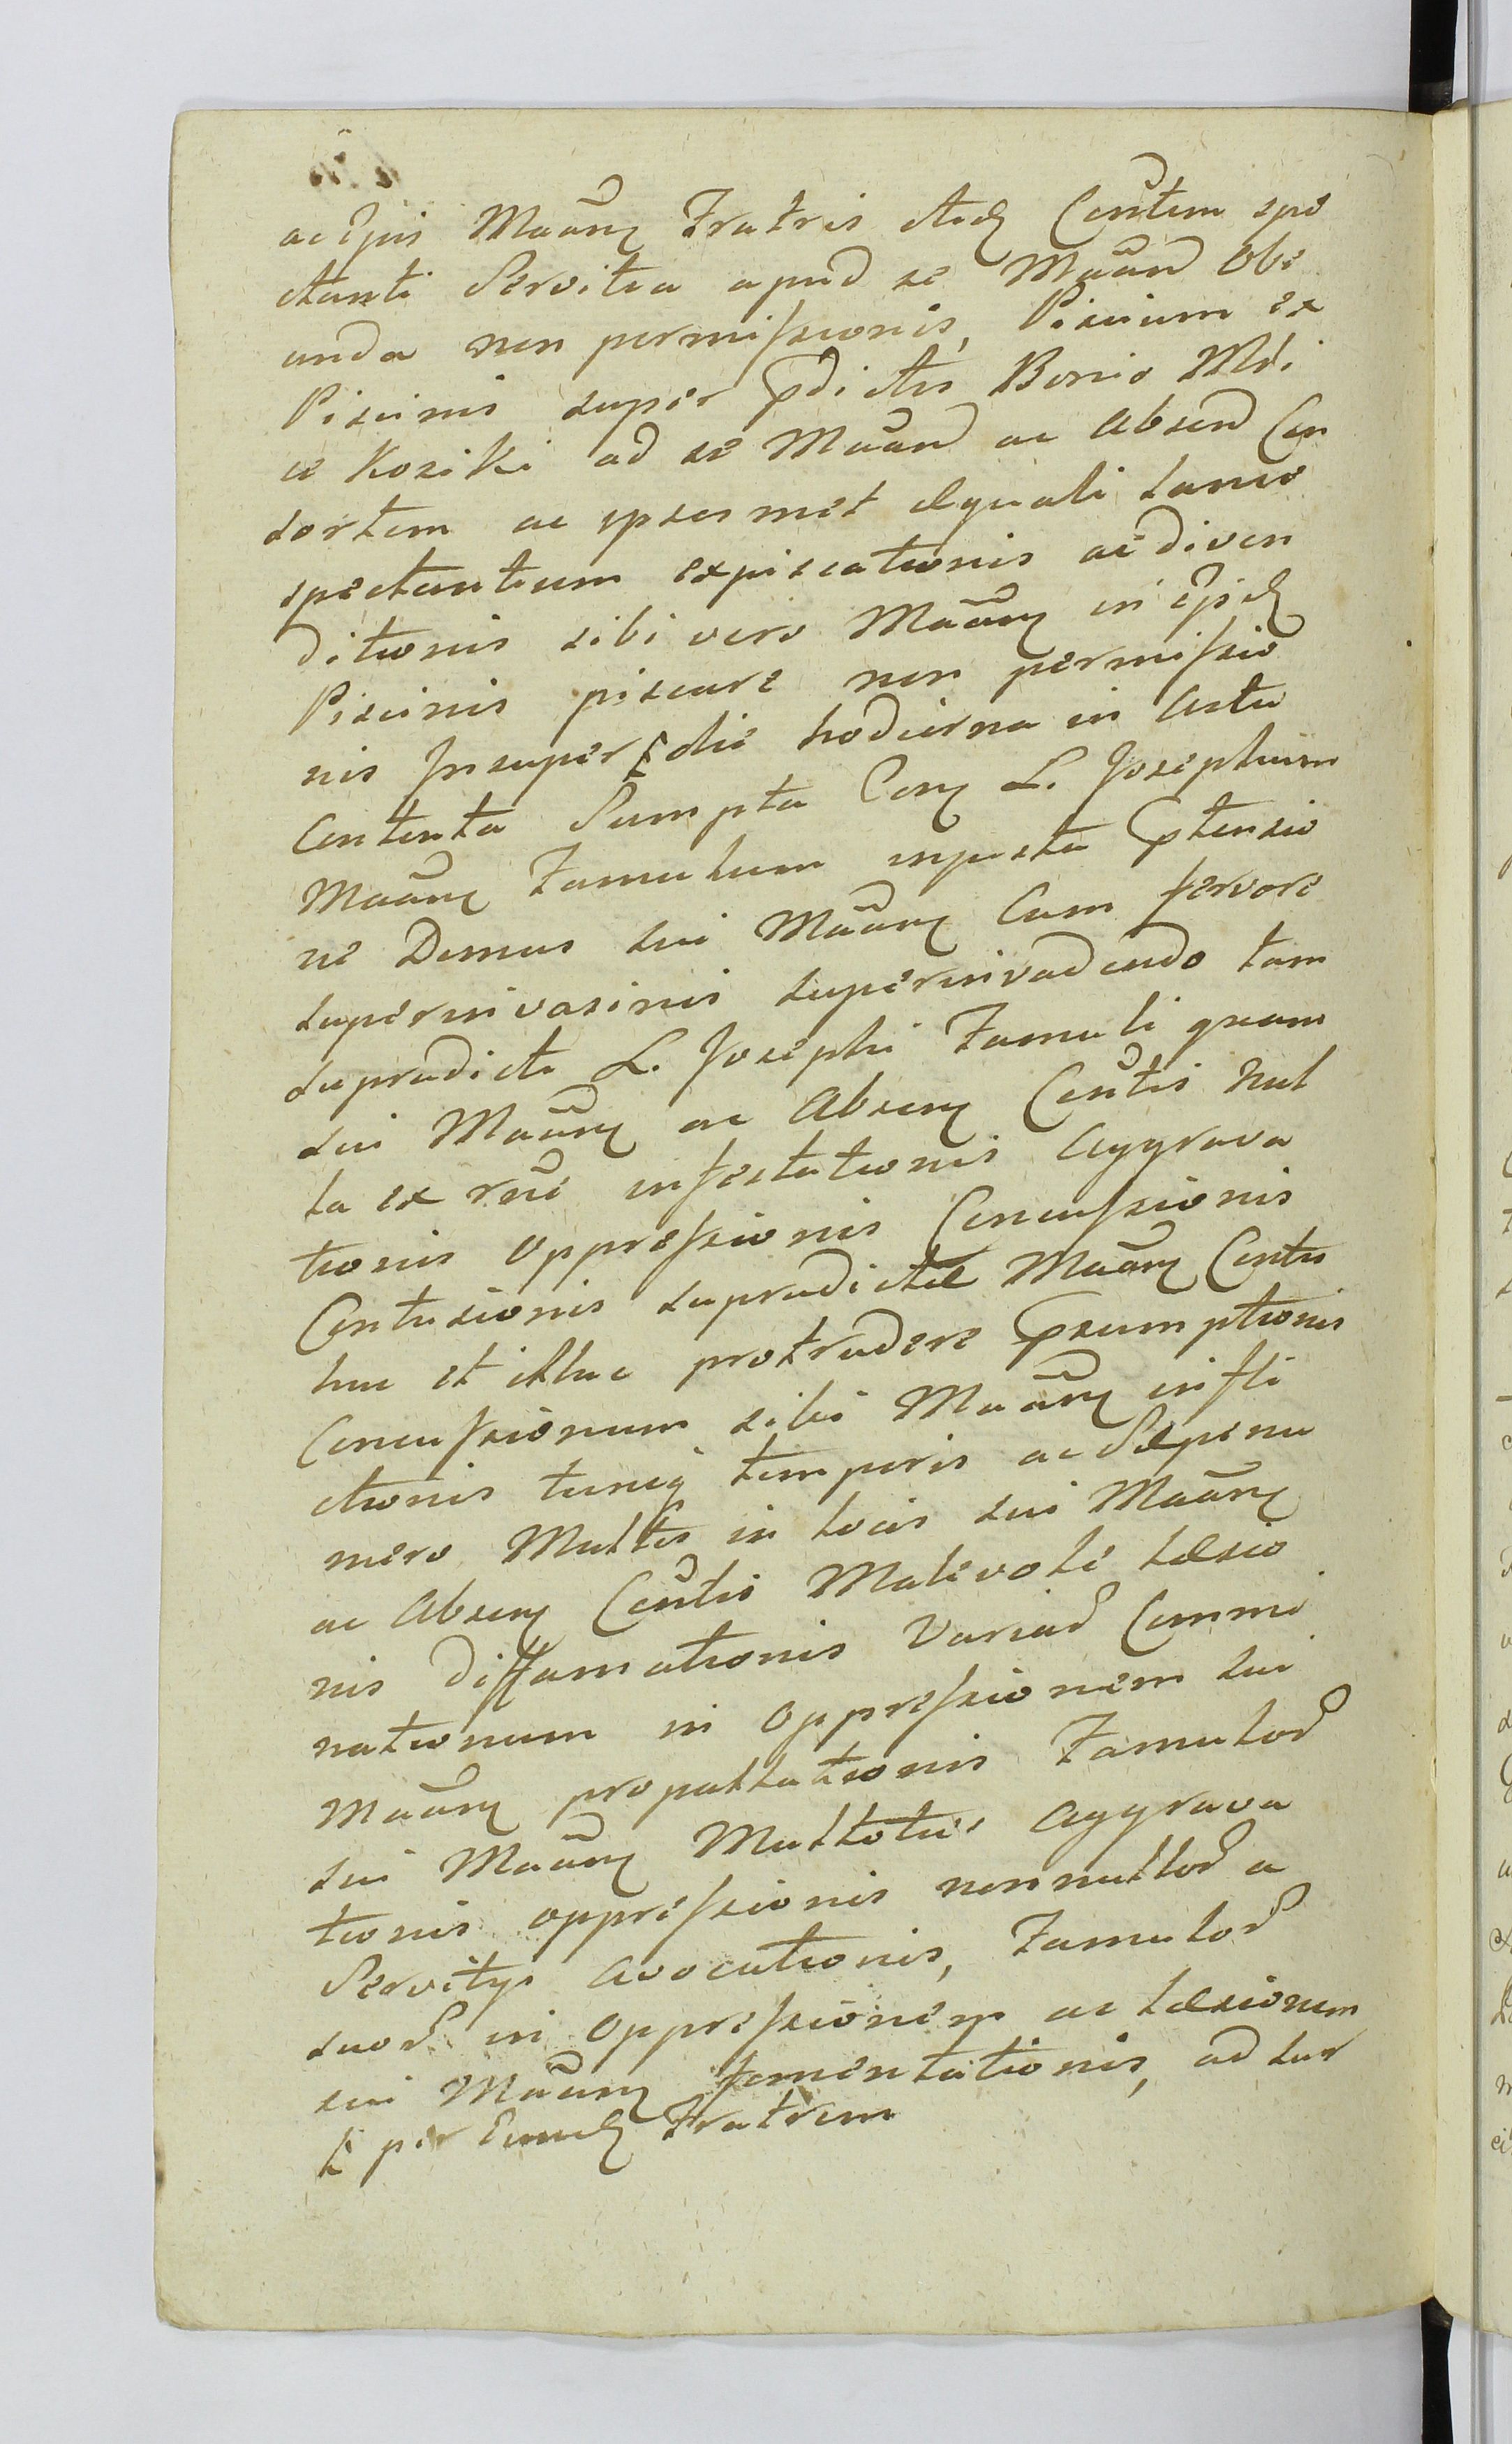 ac Ejus Mãanz Fratris ctaez Consstem spe
ctanti Servitia apud se Mãand Obe
unda non permissionis, Piscium ex
Piscinis super pdictis Bonis Mdi
ce Koziki ad se Mãand ac Absend Con
sortem ac ipsosmet aequali lance
spectantium expiscationis ac diven
ditionis sibi vero Mãanz in Ejsdz
Piscinis piscare non permissio
nis Insuper die hodierna in Actu
Contenta Sumpta Conz L. Josephum
Mãanz Famulum injusta ptensio
ne Domus sui Mãanz Cum fervore
superinvasionis superinvadendo tam
supradicti L. Josephi Famuli quam
sui Mãanz ac Absenz Consstis nul
la ex rne infestationis Aggrava
tionis Oppressionis Concussionis
Contusionis supradictae Mãanz Contis
huc et illuc protrudere psumptionis
Concussionum sibi Mãanz infli
ctionis tuncq temporis ac Saepenu
mero Multis in locis sui Mãanz
ac Absenz Consstis Malevole laesio
nis diffamationis Variad Commi
nationum in Oppressionem sui
Mãanz propallationis Famulod
sui Mãanz Multoties Aggrava
tionis oppressionis nonnullod a
Servitys avocationis, Famulod
suod in Oppressionem ac laesionem
sui Mãanz fomentationis, ad sur
per Eundz Fratrem